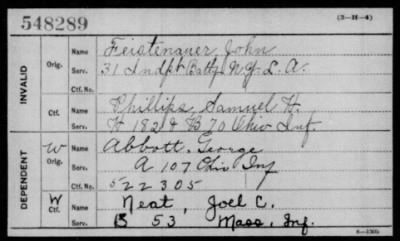 548289
(3-H-4)
INVALID
Orig.
Name
Feistenauer, John
Serv.
31 Indpt Batty N.Y. L. A.
Ctf. No.
Ctf.
Name
Phillips, Samuel H.
Serv.
H 182 & B 70 Ohio Inf.
DEPENDENT
W
Orig.
Name
Abbott, George
Serv.
A 107 Ohio Inf
Ctf. No.
522305
W
Ctf.
Name
Neat, Joel C.
Serv.
B 53 Mass. Inf.